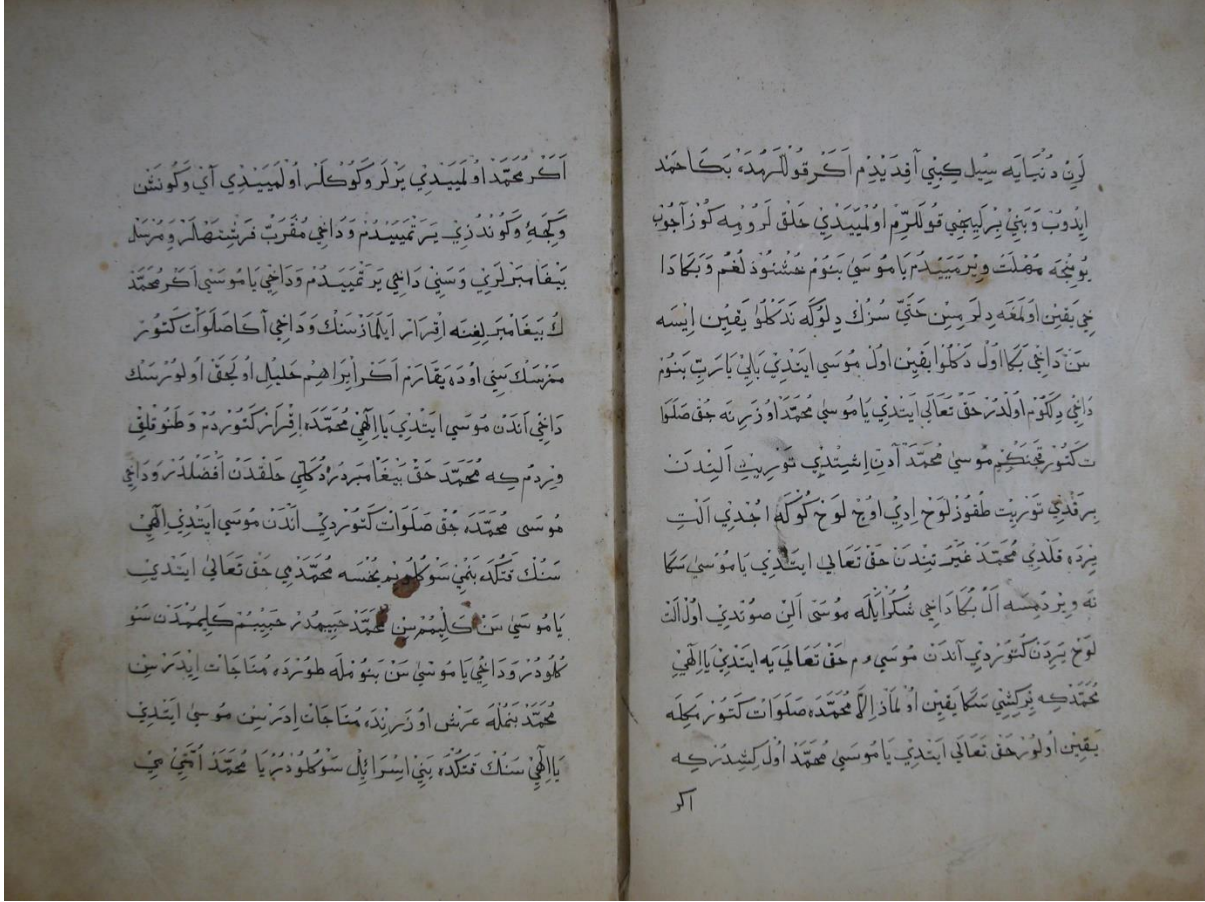 لَرِنْ دُنْيَايَه سِيل كِبِي آقِدَيْدِم اَكَرْ قُوللَرُمدَه بَكَا حَمْد
ايدُوبْ وَبَنِي بِرْلَيِيجِي قُوللَرُم اُولْمَيَيْدِي خَلْق لَرُومِه كُوزْ آچُوبْ
يُومُنْجَه مُهْلَتْ وِيرْمَيَيْدُم يَا مُوسَى بَنُوم خُشْنُوذْلُغُم وَبَكَا دَا
خِي يَقِين اُولْمَغَه دِلَرْمِسِن حَتَّى سُزُكْ دِلُوكَه نَدَكْلُو يَقِين اِيسَه
سَنْ دَاخِي بَكَا اُولْ دَكْلُو يَقِين اُولْ مُوسَى ايتدِي بَلِي يَا رَبِّ بَنُوم
دَاخِي دِلَكُوم اُولدُرْ حَقّ تَعَالَى ايتدِي يَا مُوسَى مُحَمَّدْ اُوزَرِنَه چُقْ صَلَوَا
تْ كَتُورْ قَچَنكِيم مُوسَى مُحَمَّدْ آدِنْ اِشِيتْدِي تَوْرِيتْ اَلِنْدَنْ
بِرَقْدِي تَوْرِيتْ طُقُوزْ لَوْح اِدِي اُوچْ لَوْح كُوكَه اُچْدِي اَلْتِ
يِرْدَه قَلْدِي مُحَمَّدْ غَيْرَتِينْدَنْ حَقّ تَعَالَى ايتْدِي يَا مُوسَى سَكَا
نَه وِيرْدُمِسَه اَلْ بُكَا دَاخِي شُكْر اَيْلَه مُوسَى اَلِنْ صُونْدِي اُولْ اَلْتِ
لَوْح يِرْدَنْ كَتُورْدِي آنْدَنْ مُوسَى ءم حَقّ تَعَالَى يَه ايتْدِي يَا اِلَهِي
مُحَمَّدْ كِه بِرْ كِشِي سَكَا يَقِين اُولْمَازْ اِلَّا مُحَمَّدَه صَلَوَاتْ كَتُورْمَكِلَه
يَقِين اُولُورْ حَقّ تَعَالَى ايتْدِي يَا مُوسَى مُحَمَّدْ اُولْ كِشِيدُرْكِه
اكر
اَكَرْ مُحَمَّدْ اُولْمَيَيْدِي يِرْلَرْ وَكُوكْلَرْ اُولْمَيَيْدِي آيْ وَكُونَشِنْ
وَكِجَه وَكُونْدُزِي يَرَتْمَيَيْدُمْ وَدَاخِي مُقَرَّبْ فِرِشْتَهلَرْ وَمُرْسَلْ
بَيْغَامْبَرْلَرِي وَسَنِي دَاخِي يَرَتْمَيَيْدُمْ وَدَاخِي يَا مُوسَى اَكَرْ مُحَمَّدْ
كْ بَيْغَامْبَرْلِغِنَه اِقْرَارْ اَيْلَمَازْسَنْكْ وَدَاخِي آكَا صَلَوَاتْ كَتُورْ
مَزْسَكْ سَنِي اُودَه يَقَارَم اَكَرْ اِبْرَاهِيم خَلِيل اُولَجَقْ اُولُورْسَكْ
دَاخِي اَنْدَنْ مُوسَى ايتْدِي يَا اِلَهِي مُحَمَّدَه اِقْرَارْ كَتُورْدُمْ وَطَنُوقْلِقْ
وِرْدُمْ كِه مُحَمَّدْ حَقّ بَيْغَامْبَرْدُرْ دُكَلِي خَلْقدَنْ اَفْضَلْدُرْ وَدَاخِي
مُوسَى مُحَمَّدَه چُقْ صَلَوَاتْ كَتُورْدِي اَنْدَنْ مُوسَى ايتْدِي اِلَهِي
سَنُكْ قَتُكْدَه بَنْمِي سَوْكُلُويَمْ يُخْسَه مُحَمَّدْمِي حَقّ تَعَالَى ايتْدِي
يَا مُوسَى سَنْ كَلِيمُمْسِنْ مُحَمَّدْ حَبِيبُمْدُرْ حَبِيبُمْ كَلِيمُمْدَنْ سَوْ
كُلُودُرْ وَدَاخِي يَا مُوسَى سَنْ بَنُومْلَه طُورْدَه مُنَاجَاتْ اِيدَرْسِنْ
مُحَمَّدْ بَنُمْلَه عَرْشْ اُوزَرِنْدَه مُنَاجَاتْ اِدَرْ سِنْ مُوسَى ايتْدِي
يَا اِلَهِي سَنُكْ قَتُكْدَه بَنِي اِسْرَائِلْ سَوْكُلُودُرْ يَا مُحَمَّدْ اُمَّتِي مِي